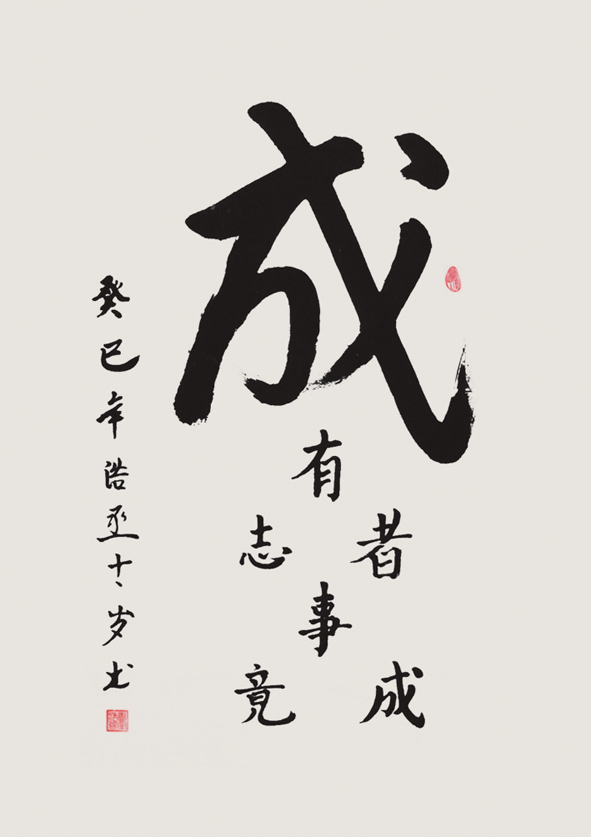 成
有
志者
事
竟成
癸巳年浩丞十二岁书